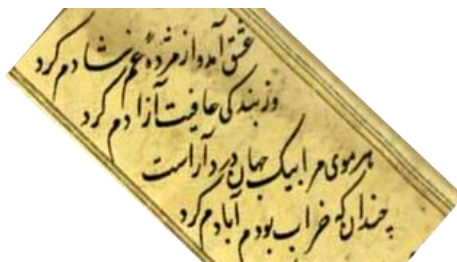 عشق آمد و از مژدهٔ غم شادم کرد
وز بندگی عافیت آزادم کرد
هر موی مرا بیک جهان درد آراست
چندان که خراب بودم آبادم کرد